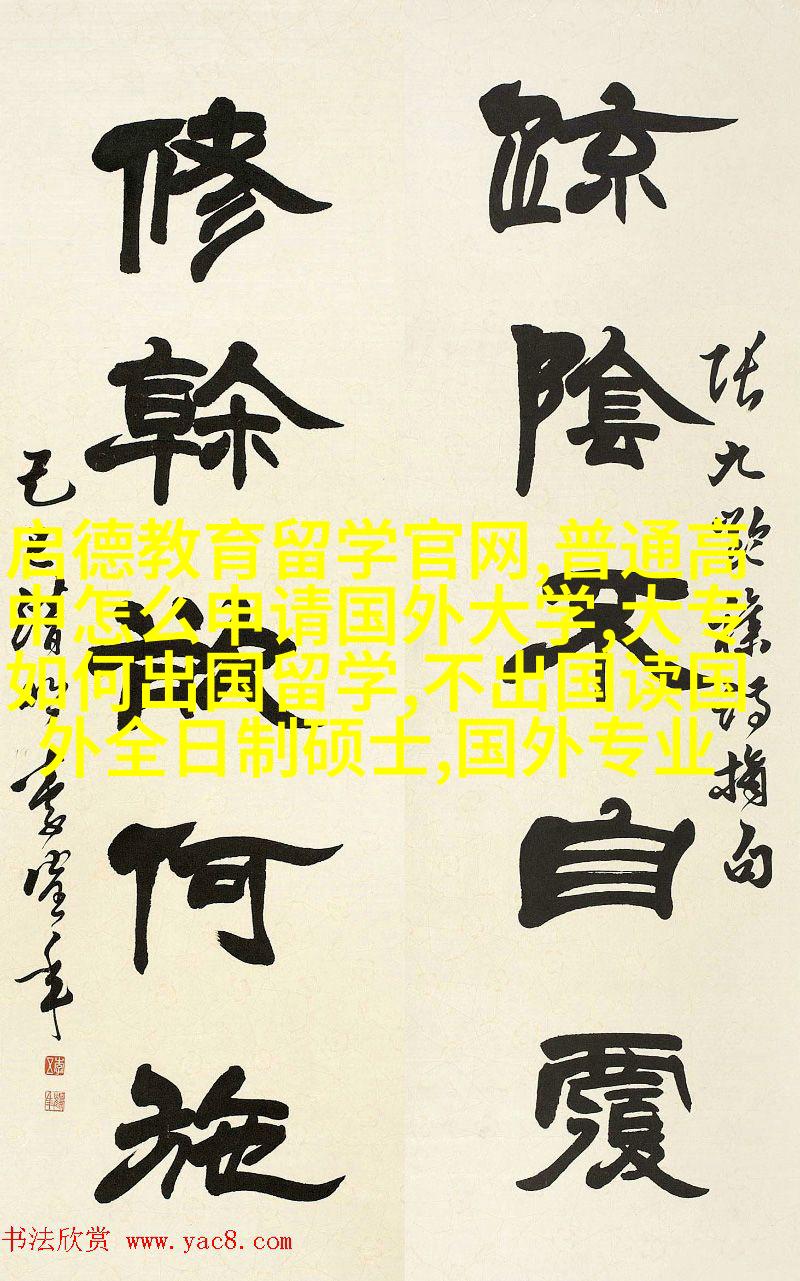 疏陰不自覆
修幹欲何施
張九齡詩摘句
己巳清明 李鐸年
启德教育留学官网,普通高
中怎么申请国外大学,大专
如何出国留学,不出国读国
外全日制硕士,国外专业
书法欣赏 www.yac8.com